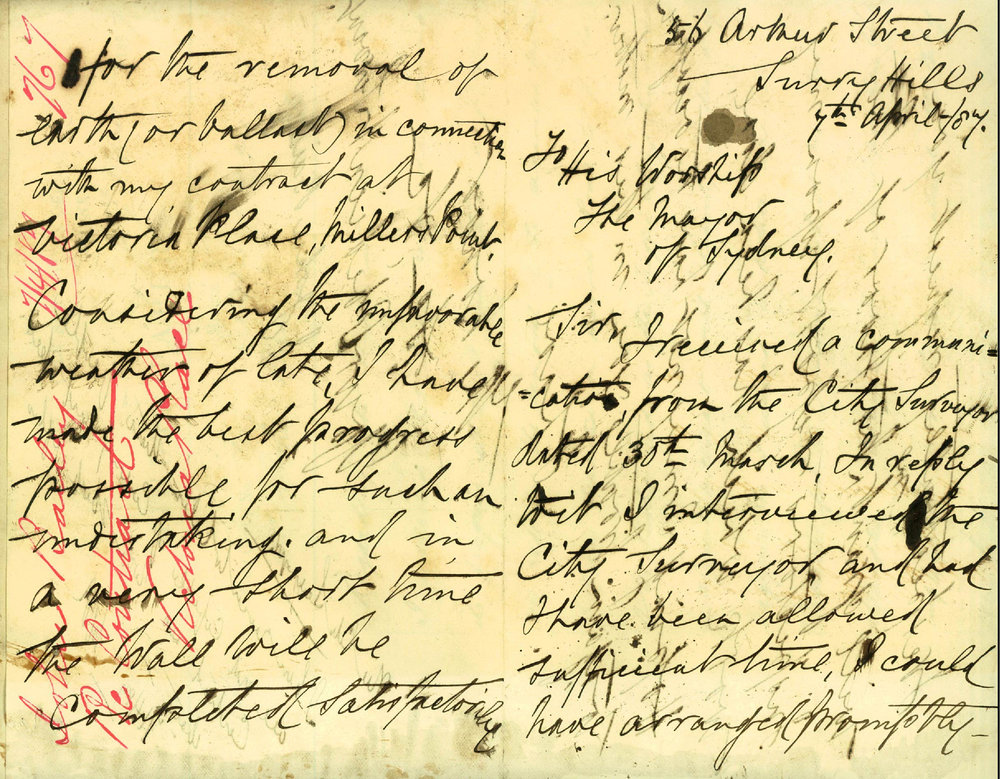 56 Arthur Street
Surry Hills
7th April /87.
To
His Worship
The Mayor
of Sydney.
Sir,
I received a communi=
=cation, from the City Surveyor
dated 30th March, In reply
to it I interviewed the
City Surveyor, and had
I have been allowed
sufficient time, I could
have arranged promptly
for the removal of
earth (or ballast) in connection
with my contract at
Victoria Place, Millers Point.
Considering the unfavorable
weather of late, I have
made the best progress
possible for such an
undertaking. and in
a very short time
the Wall will be
Completed Satisfactorily
John
Re Contract
Victoria Place
7/4/87